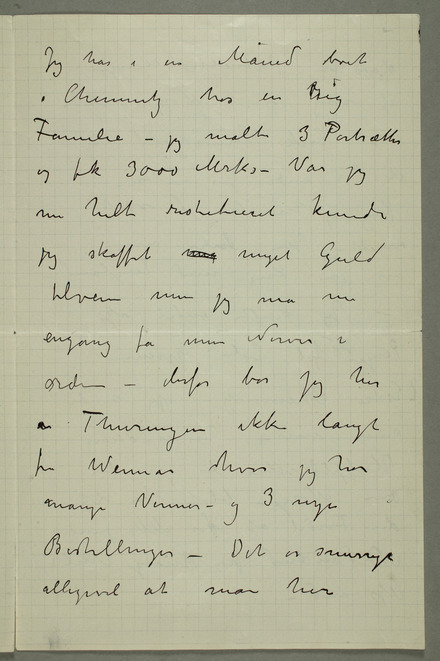 Jeg har i en Måned boet
i Chemnitz hos en rig
Familie – jeg malte 3 Portrætter
og fik 3000 Mrks – Var jeg
nu helt restitueret kunde
jeg skaffet meget Guld
tilveie men jeg må nu
engang få mine Nerver i
orden – derfor bor jeg her
i Thuringen ikke langt
fra Weimar hvor jeg har
mange Venner – og 3 nye
Bestillinger – Det er snurrigt
alligevel at man her